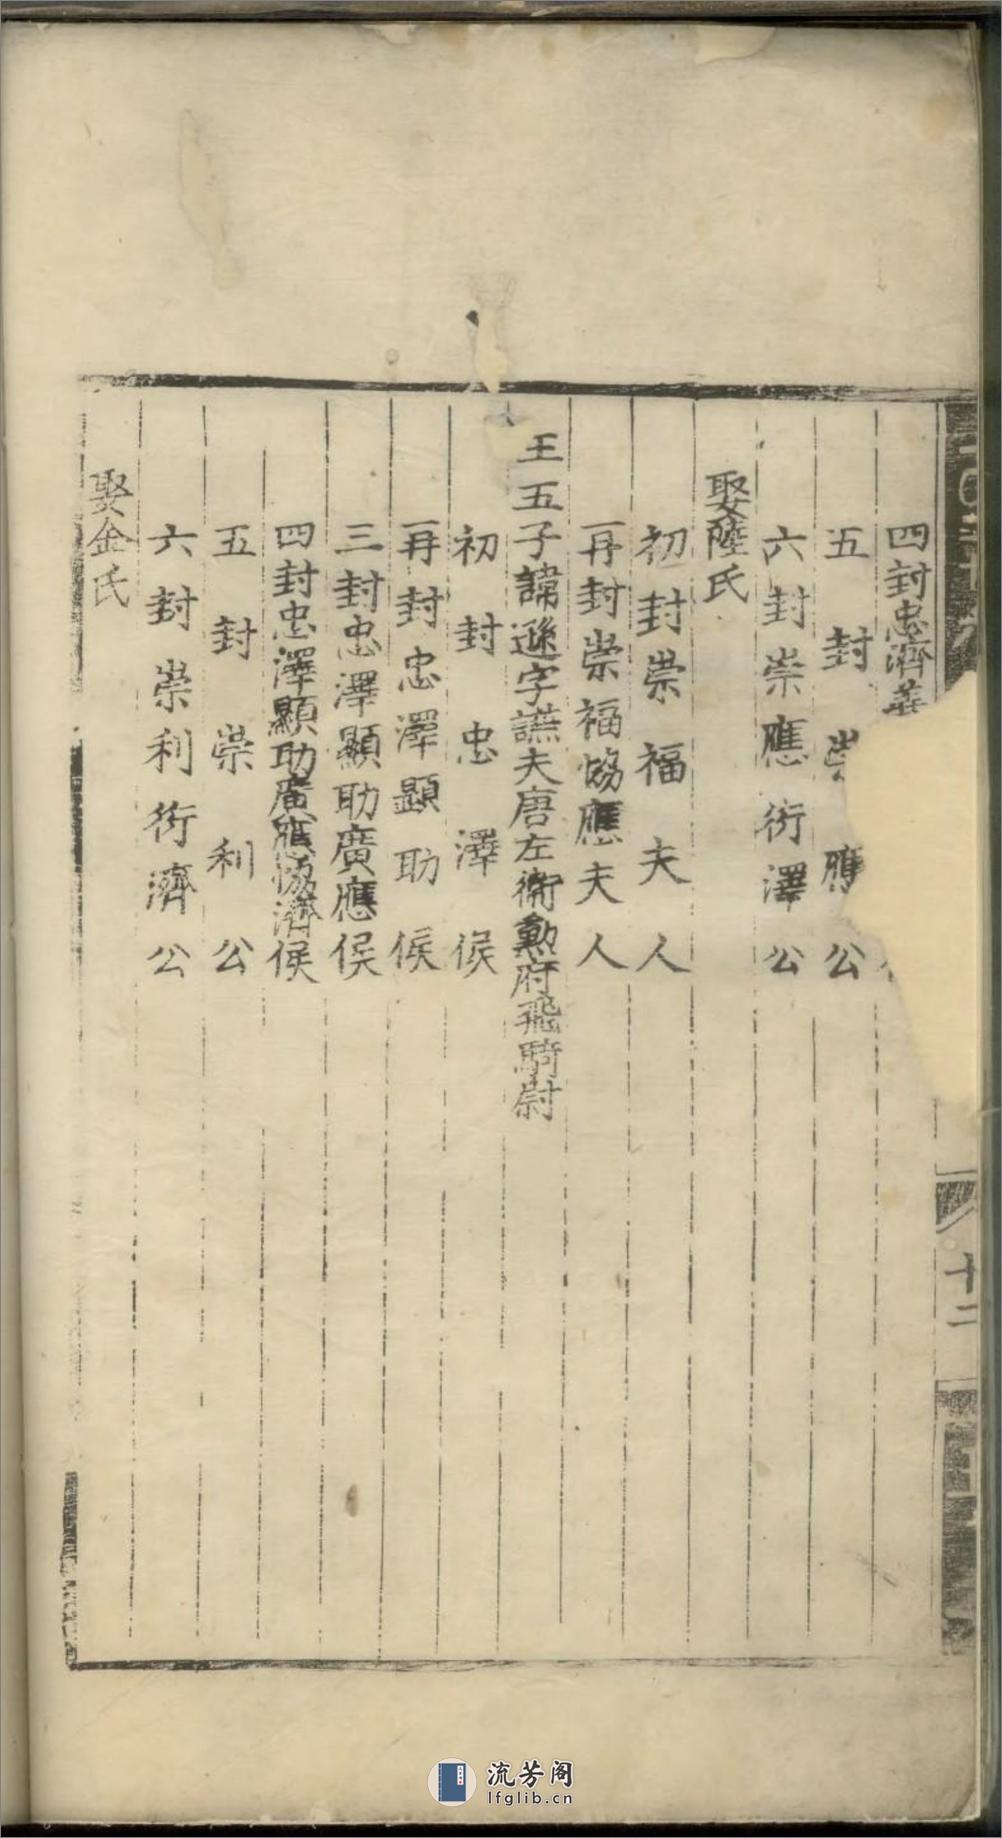 四封忠濟
五封崇應公
六封崇應衍澤公
娶陸氏
初封崇福夫人
再封崇福協應夫人
王五子諱遜字讌夫唐左衞勲府飛騎尉
初封忠澤侯
再封忠澤顯助侯
三封忠澤顯助廣應侯
四封忠澤顯助廣應協濟侯
五封崇利公
六封崇利衍濟公
娶金氏
十二
流芳阁
lfglib.cn